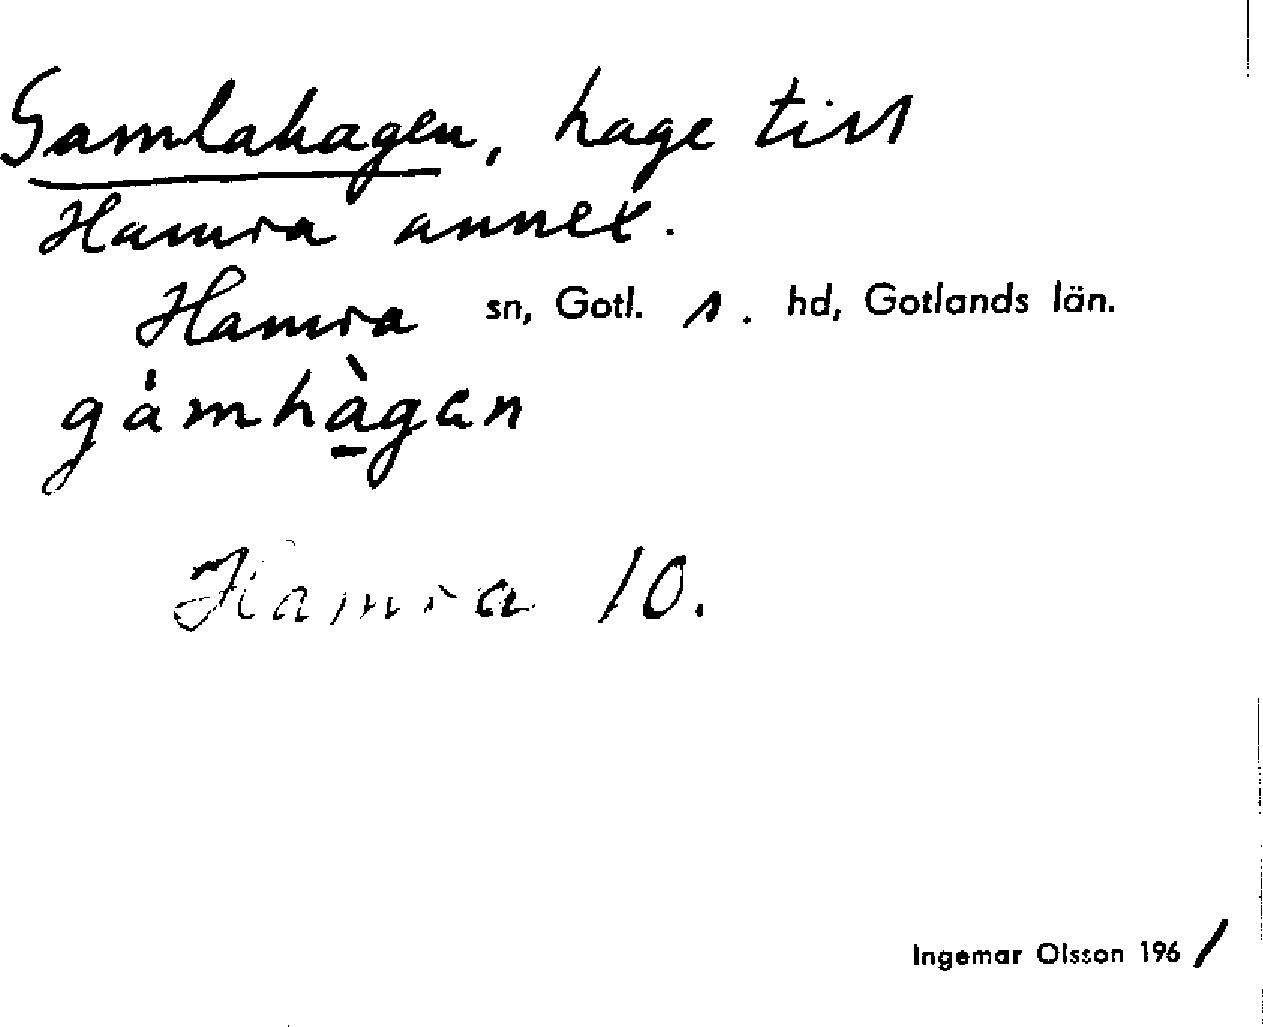 Gamlahagen, hage till
Hamra annex.
Hamra sn, Gotl. s. hd, Gotlands län.
gȧmhà̱gan
Hamra 10.
Ingemar Olsson 1961